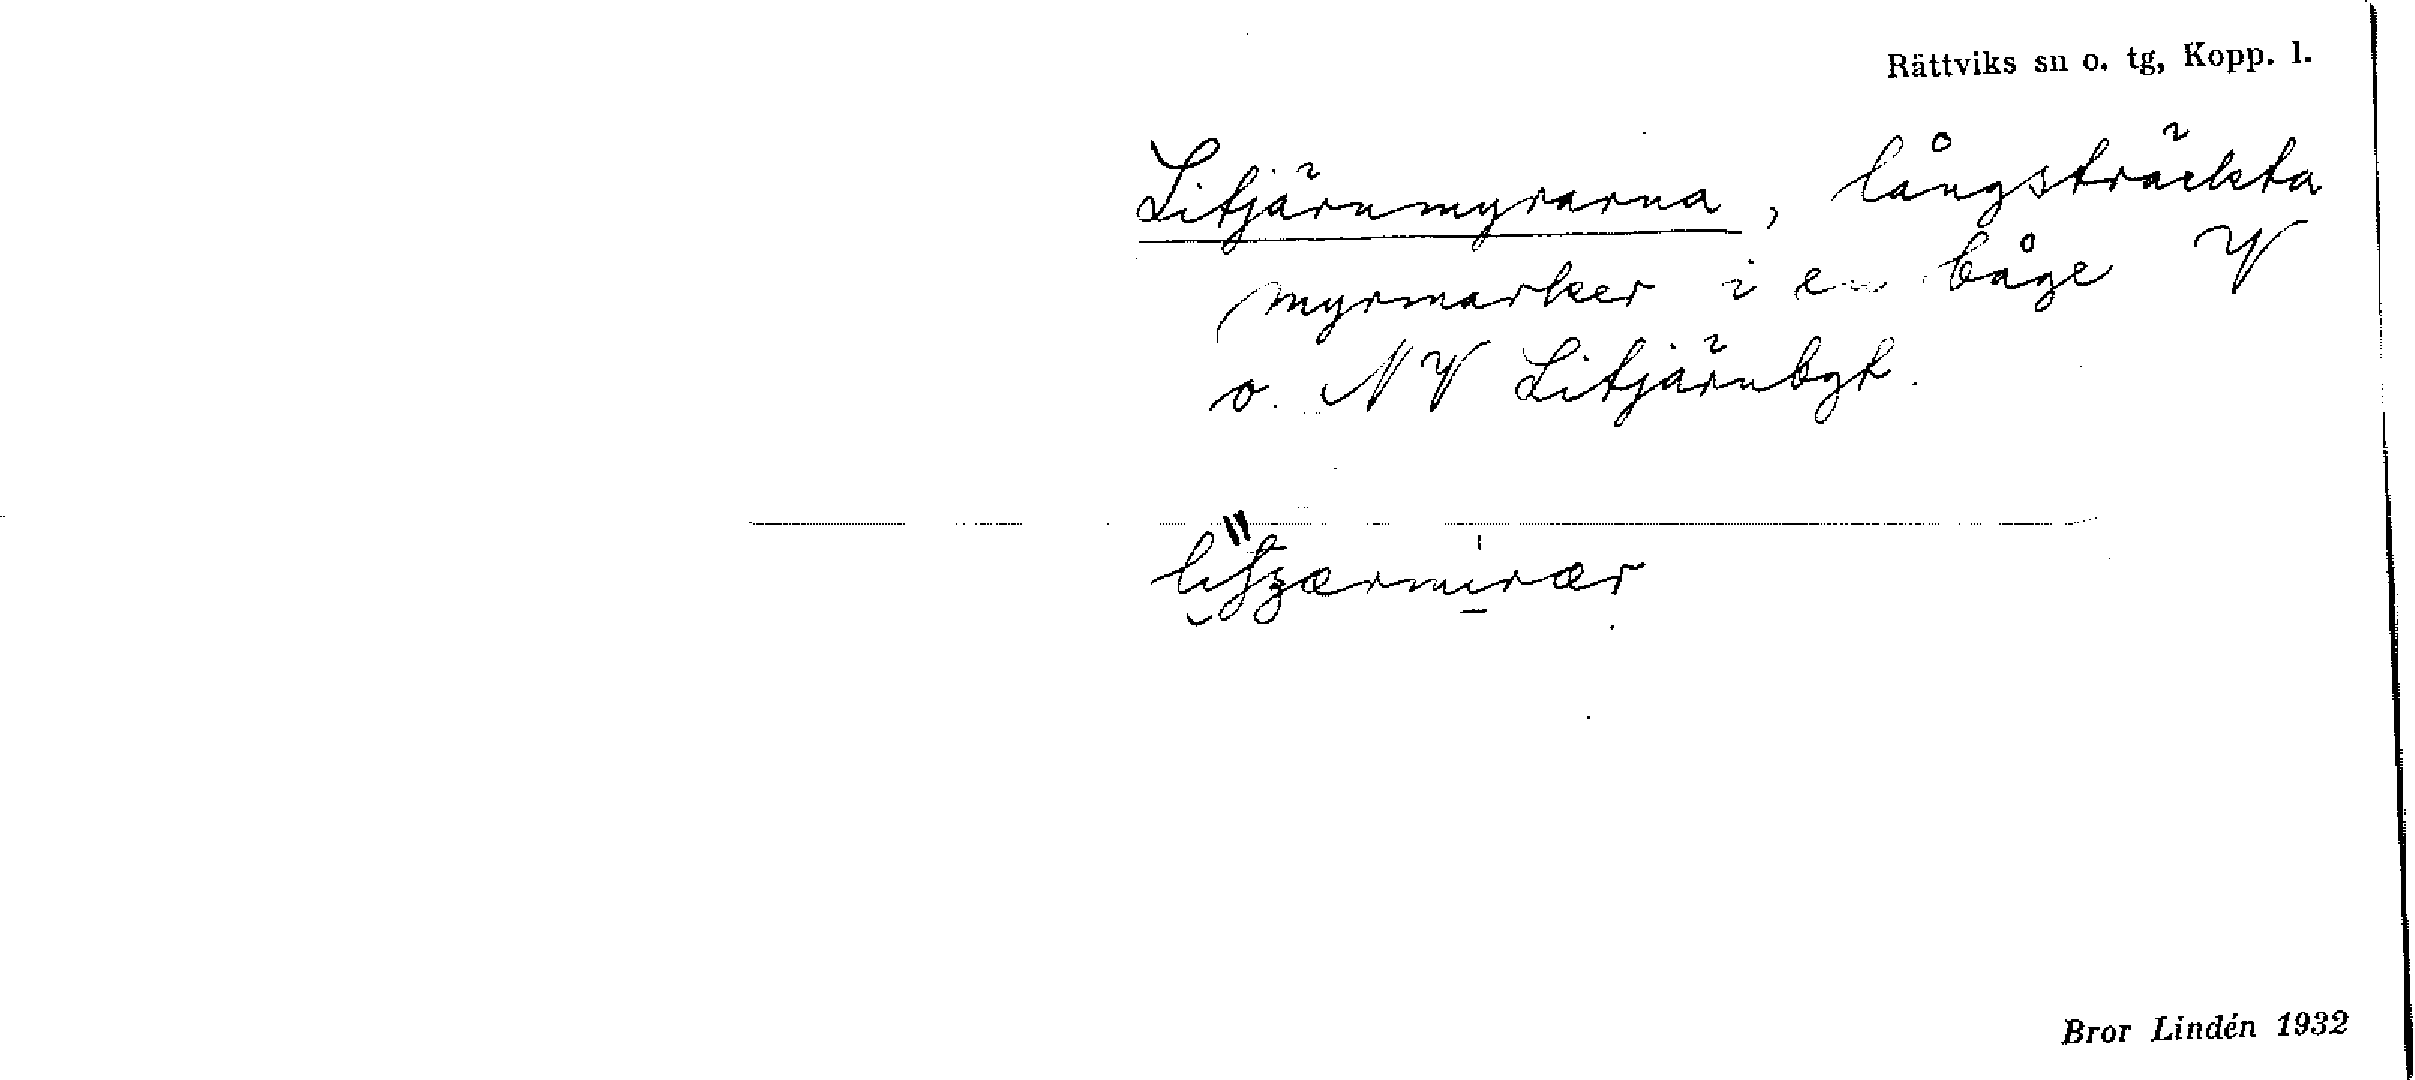 Rättviks sn o. tg, Kopp. l.
Litjärnmyrarna, långsträckta
myrmarker i en båge V
o. NV Litjärnbgt.
Bror Lindén 1932